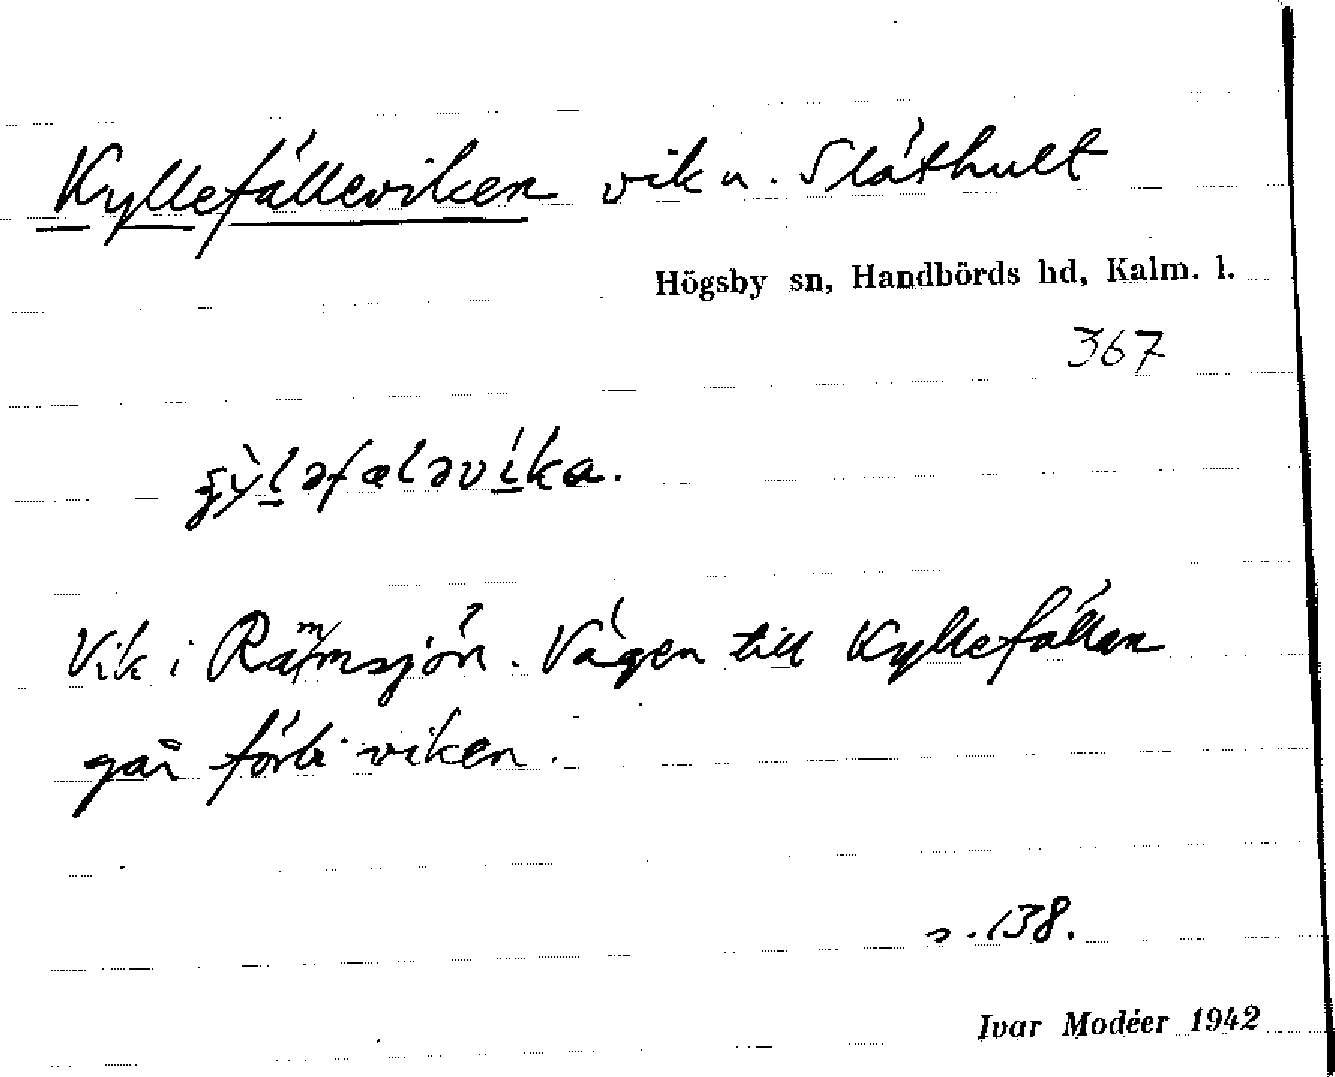 Kyllefälleviken vik u. Släthult
Högsby sn, Handbörds hd, Kalm. l.
367
Vik i Rämmsjön. Vägen till Kyllefällan
går förbi viken.
s. 138.
Ivar Modéer 1942